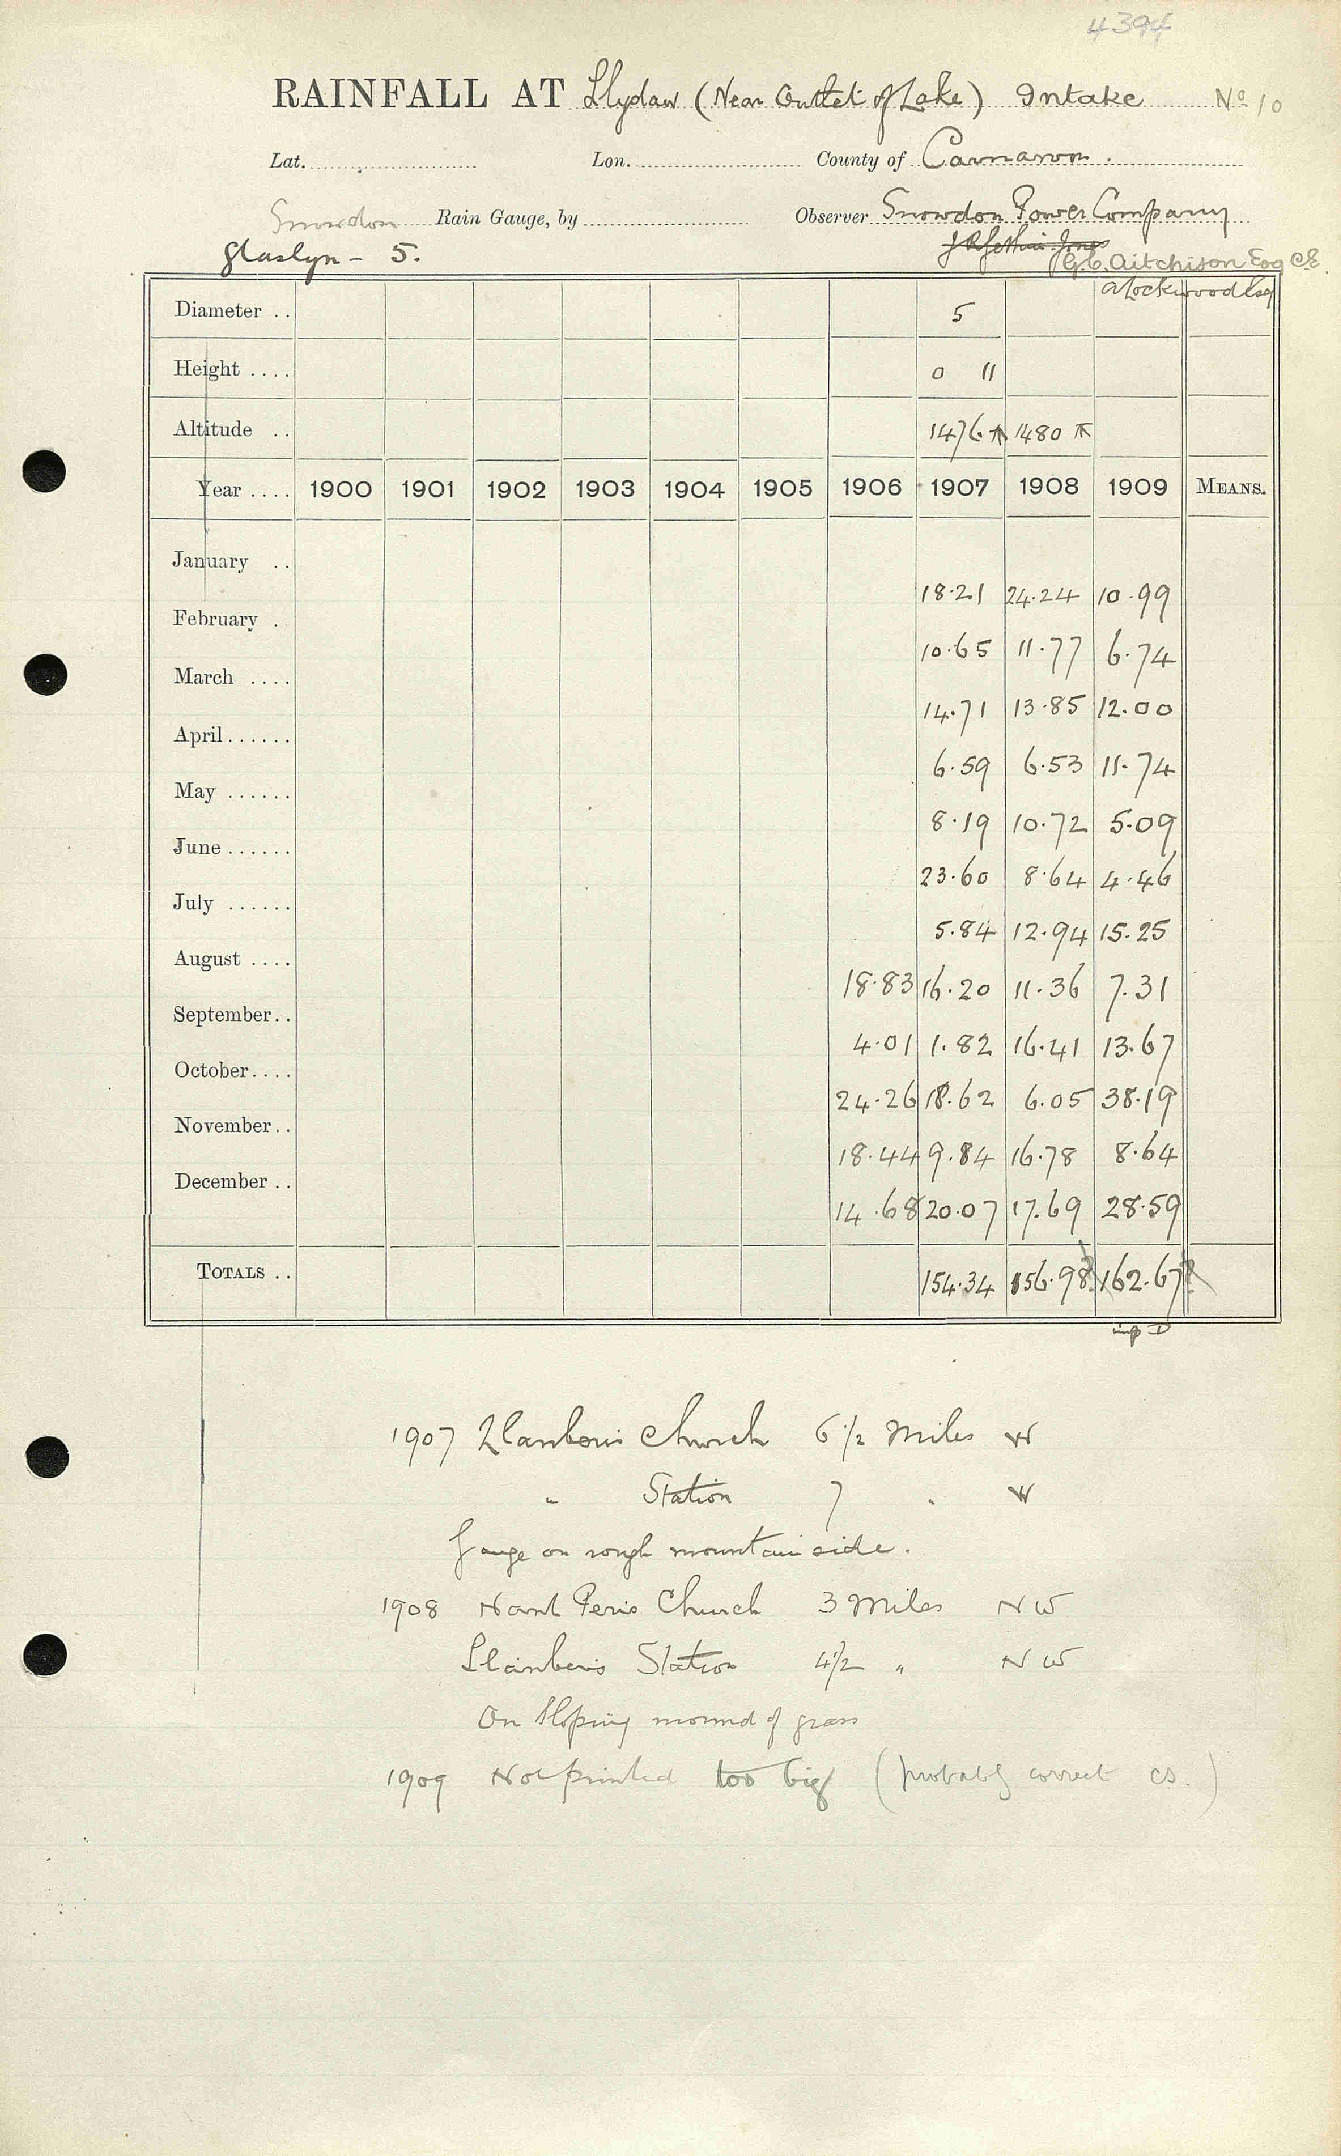 4394
RAINFALL AT Llydaw (Near Outlet of Lake) Intake No 10
Lat. Lon. County of Carnarvon.
Snowdon Rain Gauge, by Observer Snowdon Power Company
Glaslyn - 5. Jones
G.C. Aitchison Esq C.E.
A Lockwood Esq
Diameter .. 5
Height .... 0 11
Altitude .. 1476 1480
Year .... 1900 1901 1902 1903 1904 1905 1906 1907 1908 1909 MEANS.
January .. 18.21 24.24 10.99
February . 10.65 11.77 6.74
March .... 14.71 13.85 12.00
April ...... 6.59 6.53 11.74
May ...... 8.19 10.72 5.09
June ...... 23.60 8.64 4.46
July ...... 5.84 12.94 15.25
August .... 18.83 16.20 11.36 7.31
September.. 4.01 1.82 16.41 13.67
October.... 24.26 18.62 6.05 38.19
November.. 18.44 9.84 16.78 8.64
December .. 14.68 20.07 17.69 28.59
TOTALS .. 154.34 156.98? 162.67?
1907 Llanberis Church 6 1/2 Miles W
" Station 7 " W
Gauge on rough mountain side.
1908 Nant Peris Church 3 Miles NW
Llanberis Station 4 1/2 " NW
On sloping mound of grass
1909 Not printed too big (probably correct CS.)